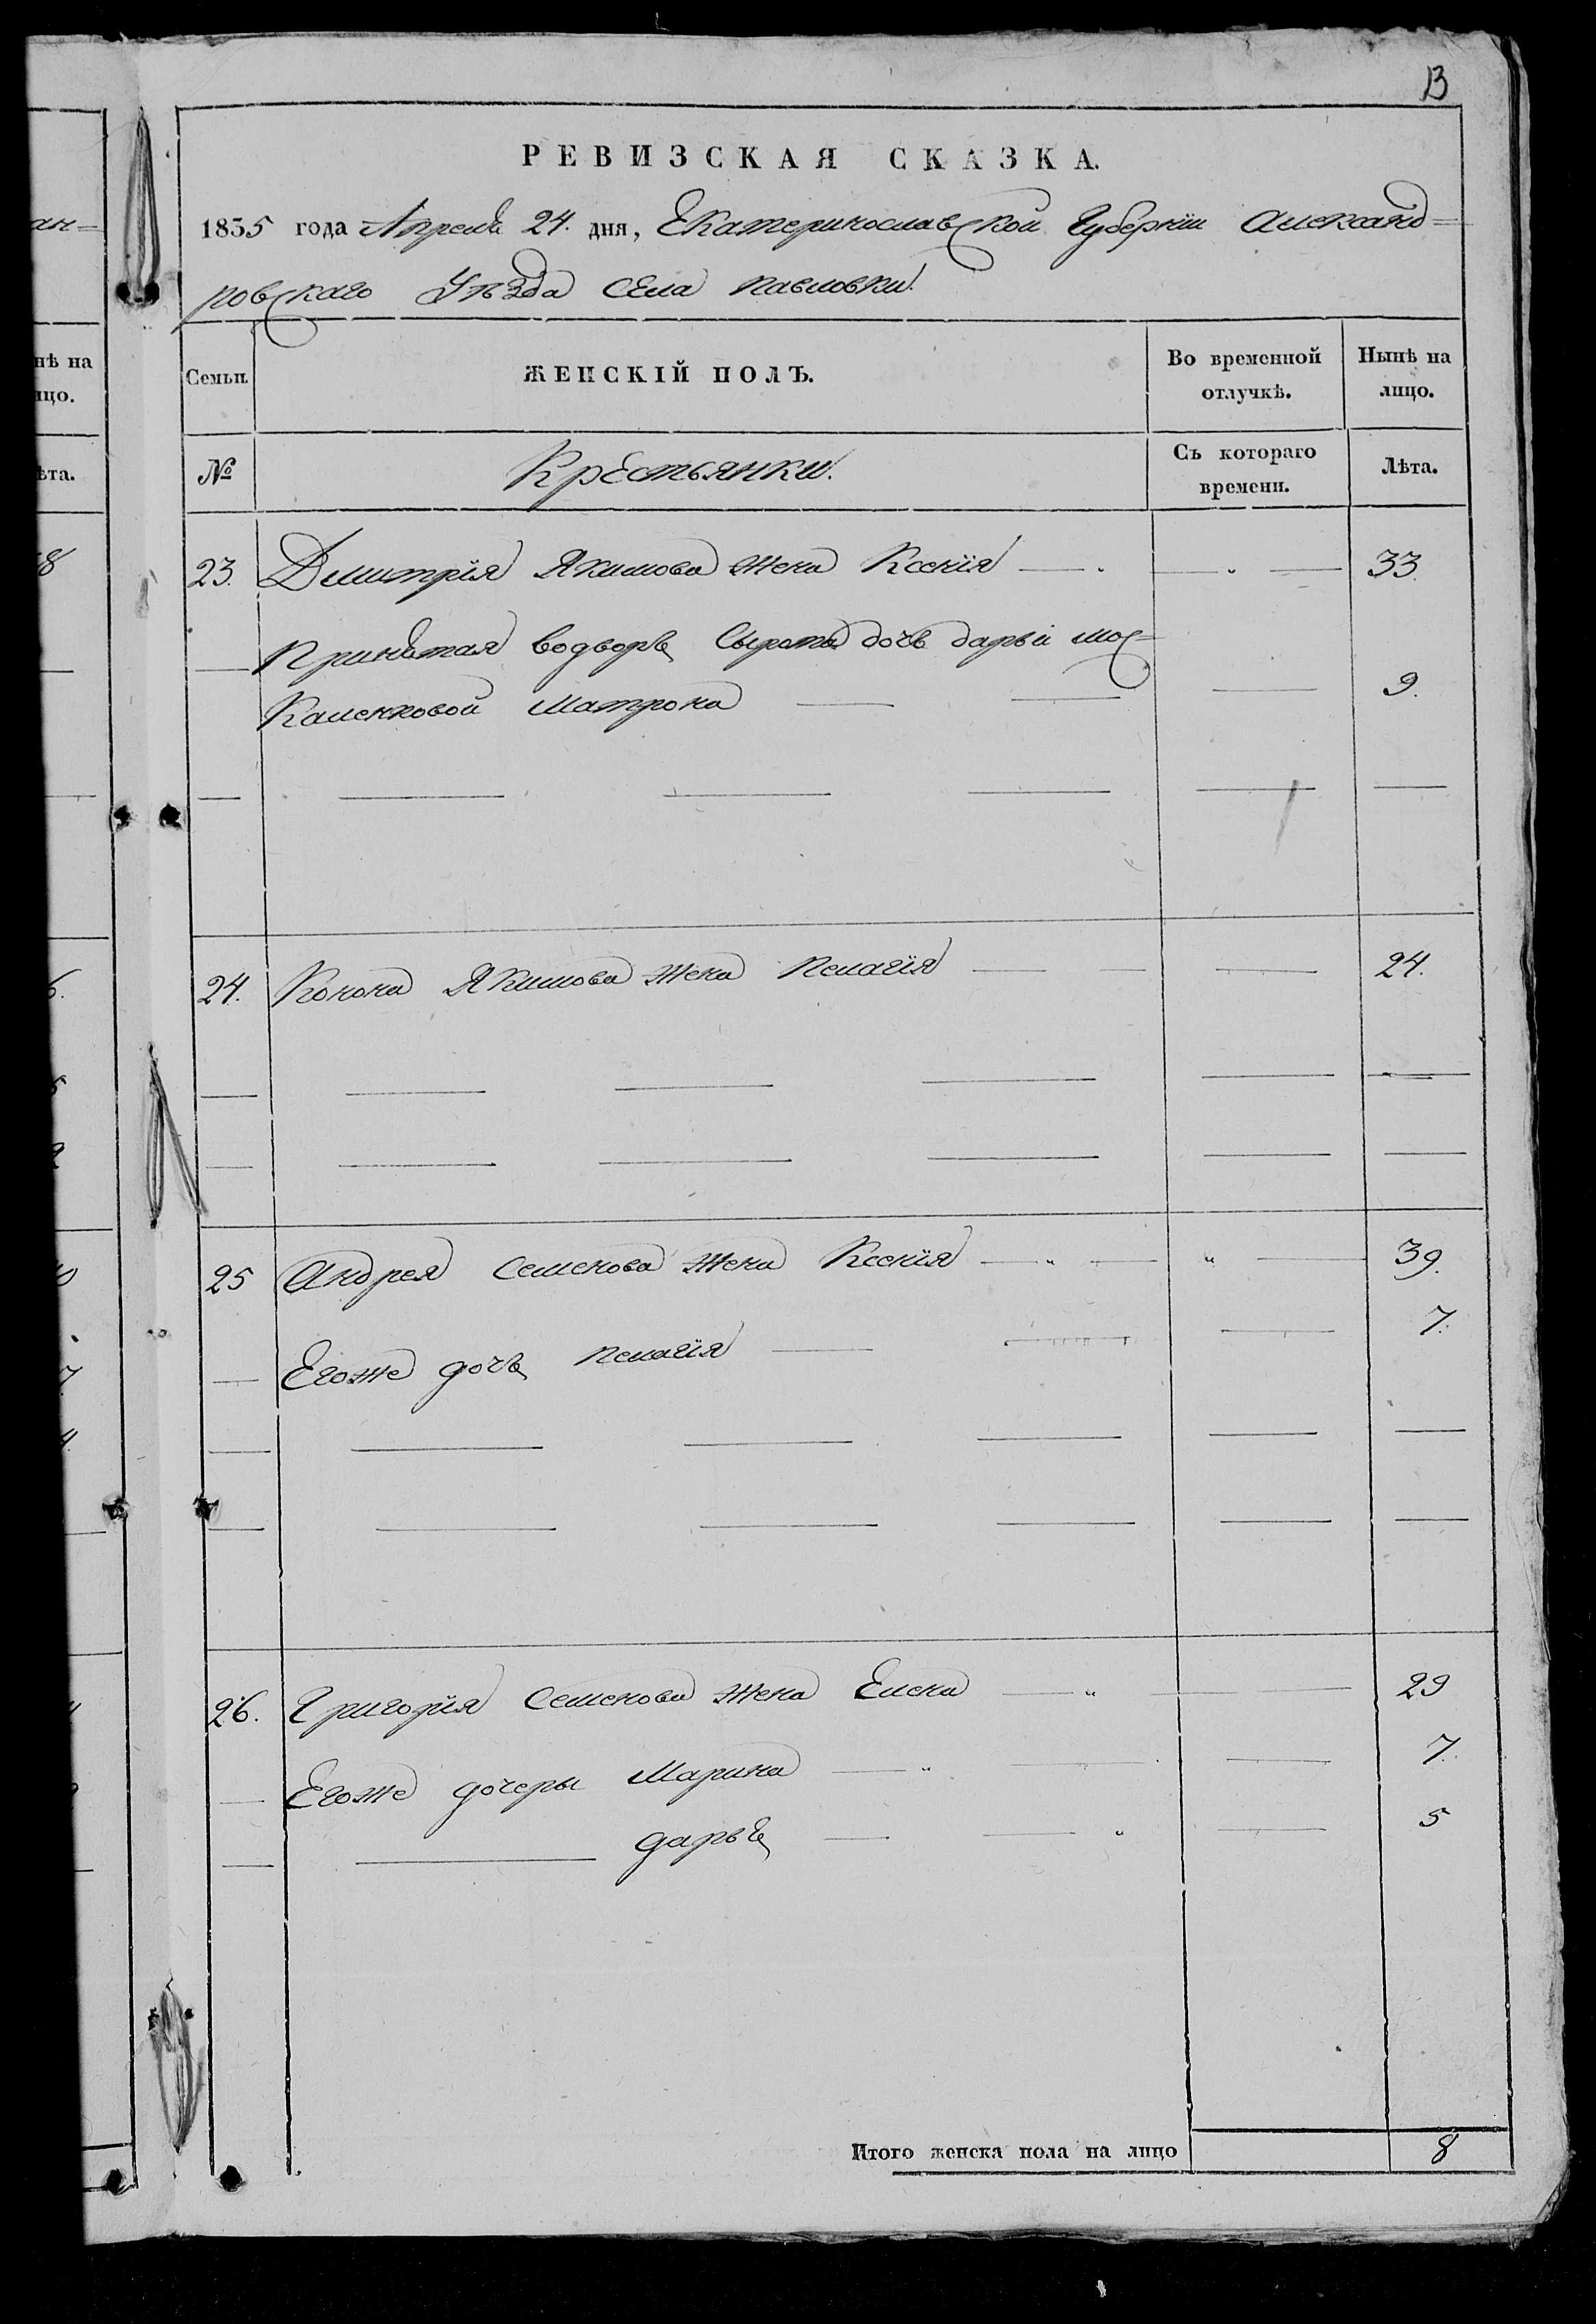 13
РЕВИЗСКАЯ СКАЗКА.
1835 года Апреля 24. дня, Екатеринославской Губернiи Александ=
ровскаго Уѣзда Села Павловки.
Семьи. ЖЕНСКІЙ ПОЛЪ. Во временной отлучкѣ. Нынѣ на лицо.
№ Крестьянки. Съ котораго времени. Лѣта.
23. Дмитрія Якимова жена Ксенія 33.
Принятая водворъ Сырота дочь дарьи мос=
Каленковой Матрона 9.
24. Конона Якимова жена Пелагія 24.
25 Андрея Семенова жена Ксенія 39.
Егоже дочь Пелагія 7.
26. Григорія Семенова жена Елена 29
Егоже дочеры Марина 7.
дарья 5
Итого женска пола на лицо 8
ан=
нѣ на
ицо.
ѣта.